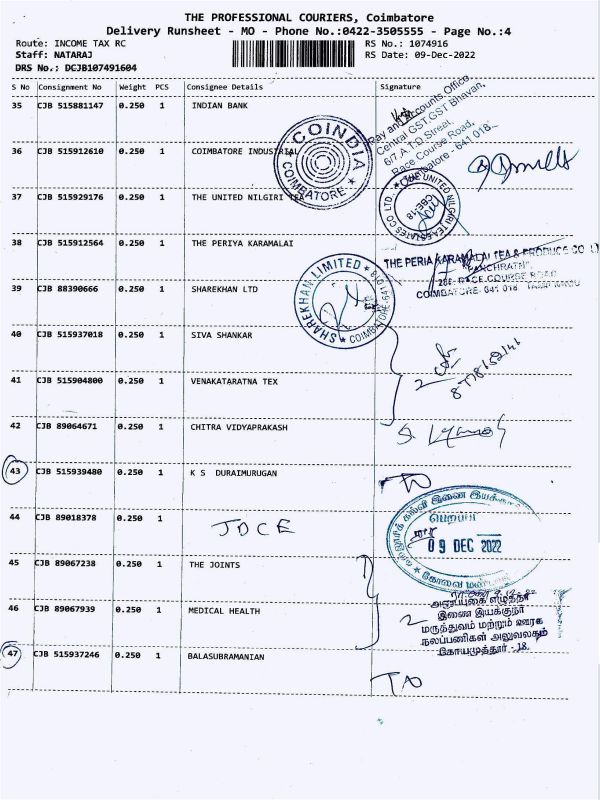 THE PROFESSIONAL COURIERS, Coimbatore
Delivery Runsheet - MO - Phone No.:0422-3505555 - Page No.:4
Route: INCOME TAX RC RS No.: 1074916
Staff: NATARAJ RS Date: 09-Dec-2022
DRS No.: DCJB107491604
S No Consignment No Weight PCS Consignee Details Signature
35 CJB 515881147 0.250 1 INDIAN BANK
Pay and Accounts Office
Central GST, GST Bhavan,
6/7, A.T.D. Street,
Race Course Road,
Coimbatore - 641 018
36 CJB 515912610 0.250 1 COIMBATORE INDUSTRIAL
COINDIA
COIMBATORE
37 CJB 515929176 0.250 1 THE UNITED NILGIRI TEA
THE UNITED NILGIRI TEA ESTATES CO LTD.
CBE-18
38 CJB 515912564 0.250 1 THE PERIYA KARAMALAI
THE PERIA KARAMALAI TEA & PRODUCE CO L
"PANCHRATN",
286, RACE COURSE ROAD
COIMBATORE- 641 018 TAMIL NADU
39 CJB 88390666 0.250 1 SHAREKHAN LTD
SHAREKHAN LIMITED
COIMBATORE-641018
40 CJB 515937018 0.250 1 SIVA SHANKAR
2
41 CJB 515904800 0.250 1 VENAKATARATNA TEX
42 CJB 89064671 0.250 1 CHITRA VIDYAPRAKASH
43 CJB 515939480 0.250 1 K S DURAIMURUGAN
44 CJB 89018378 0.250 1 JDCE
கல்லூரிக் கல்வி இணை இயக்குநர்
பெறப்பட்
09 DEC 2022
கோவை மண்டலம்
45 CJB 89067238 0.250 1 THE JOINTS
46 CJB 89067939 0.250 1 MEDICAL HEALTH
2
இணை இயக்குநர்
மருத்துவம் மற்றும் ஊரக
நலப்பணிகள் அலுவலகம்
கோயமுத்தூர் - 18.
47 CJB 515937246 0.250 1 BALASUBRAMANIAN